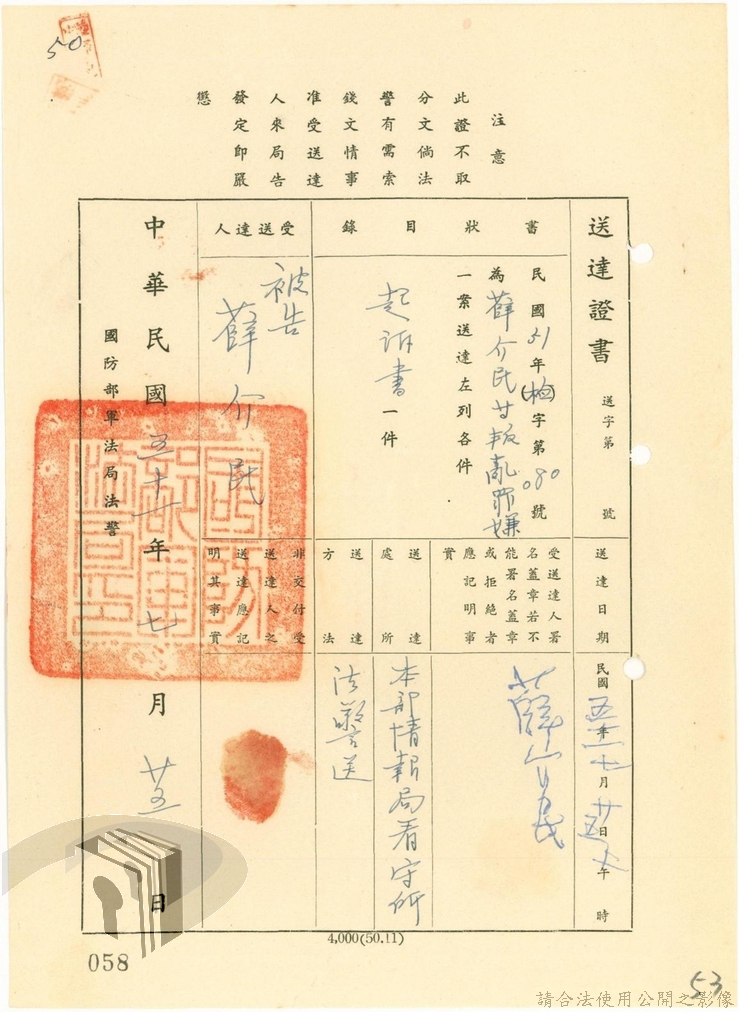 50
注意
此證不取
分文倘法
警有需索
錢文情事
准受送達
人來局告
發定即嚴
懲
送達證書
送字第 號
書狀目錄
民國51年(検)字第080號
為薛介民廿叛亂罪嫌
一案送達左列各件
起訴書一件
受送達人
被告
薛介民
送達日期
民國五十一年七月廿五日上午 時
受送達人署
名蓋章若不
能署名蓋章
或拒絕者
應記明事
實
薛介民
送達
處所
本部情報局看守所
送達
方法
法警送
非交付受
送達人之
送達應記
明其事實
中華民國五十一年七月廿五日
國防部軍法局法警
4,000(50.11)
058
53
請合法使用公開之影像